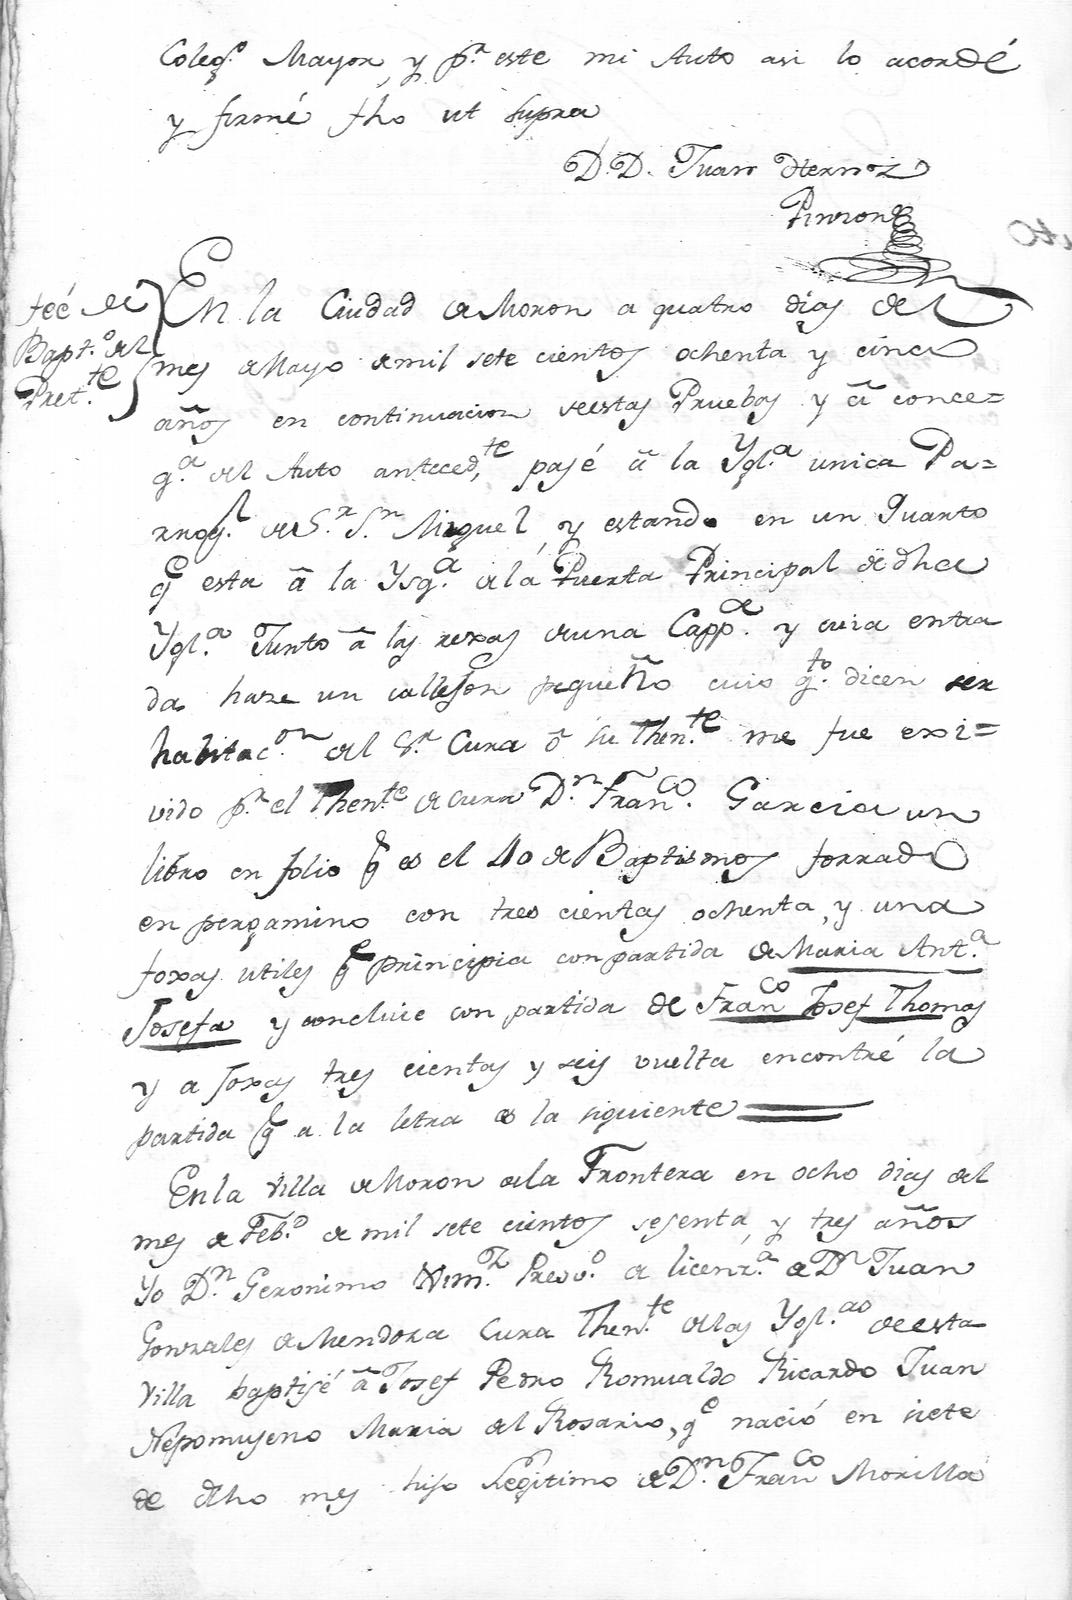 Coleg.º Mayor, y p.r este mi Auto asi lo acordé
y firmé fho ut supra
D.D. Juan Hernz
Pinzon
feé de
Bapt.º del
Pret.te
En la Ciudad de Moron a quatro dias del
mes de Mayo de mil sete cientos ochenta y cinco
años en continuacion de estas Pruebas y â conce=
q.a del Auto anteced,te pasé â la Ygl.a unica Pa=
rroq.l de S.r S.n Miguel, y estando en un Quarto
q.e esta â la Ysq.a de la Puerta Principal de dha
Ygl.a Junto â las rexas de una Capp.a y cuia entra
da haze un callejon pequeño cuio q.to dicen ser
habitac.on del S.r Cura ô su Then.te me fue exi=
vido p.r el Then.te de cura D.n Fran.co Garcia un
libro en folio q.e es el 40 de Baptismos forrado
en pergamino con tres cientas ochenta, y una
foxas utiles q.e principia con partida de Maria Ant.a
Josefa y concluie con partida de Fran.co Josef Thomas
y a foxas tres cientas y seis vuelta encontré la
partida q.e a la letra es la siguiente
En la Villa de Moron de la Frontera en ocho dias del
mes de Feb.º de mil sete cientos sesenta, y tres años
Yo D.n Geronimo Xim.z Presv.º de licenz.a de D.n Juan
Gonzales de Mendoza Cura Then.te de las Ygl.as de esta
Villa baptisé â Josef Pedro Romualdo Ricardo Juan
Nepomuseno Maria del Rosario, q.e nació en siete
de dho mes hijo Legitimo de D.n Fran.co Morilla